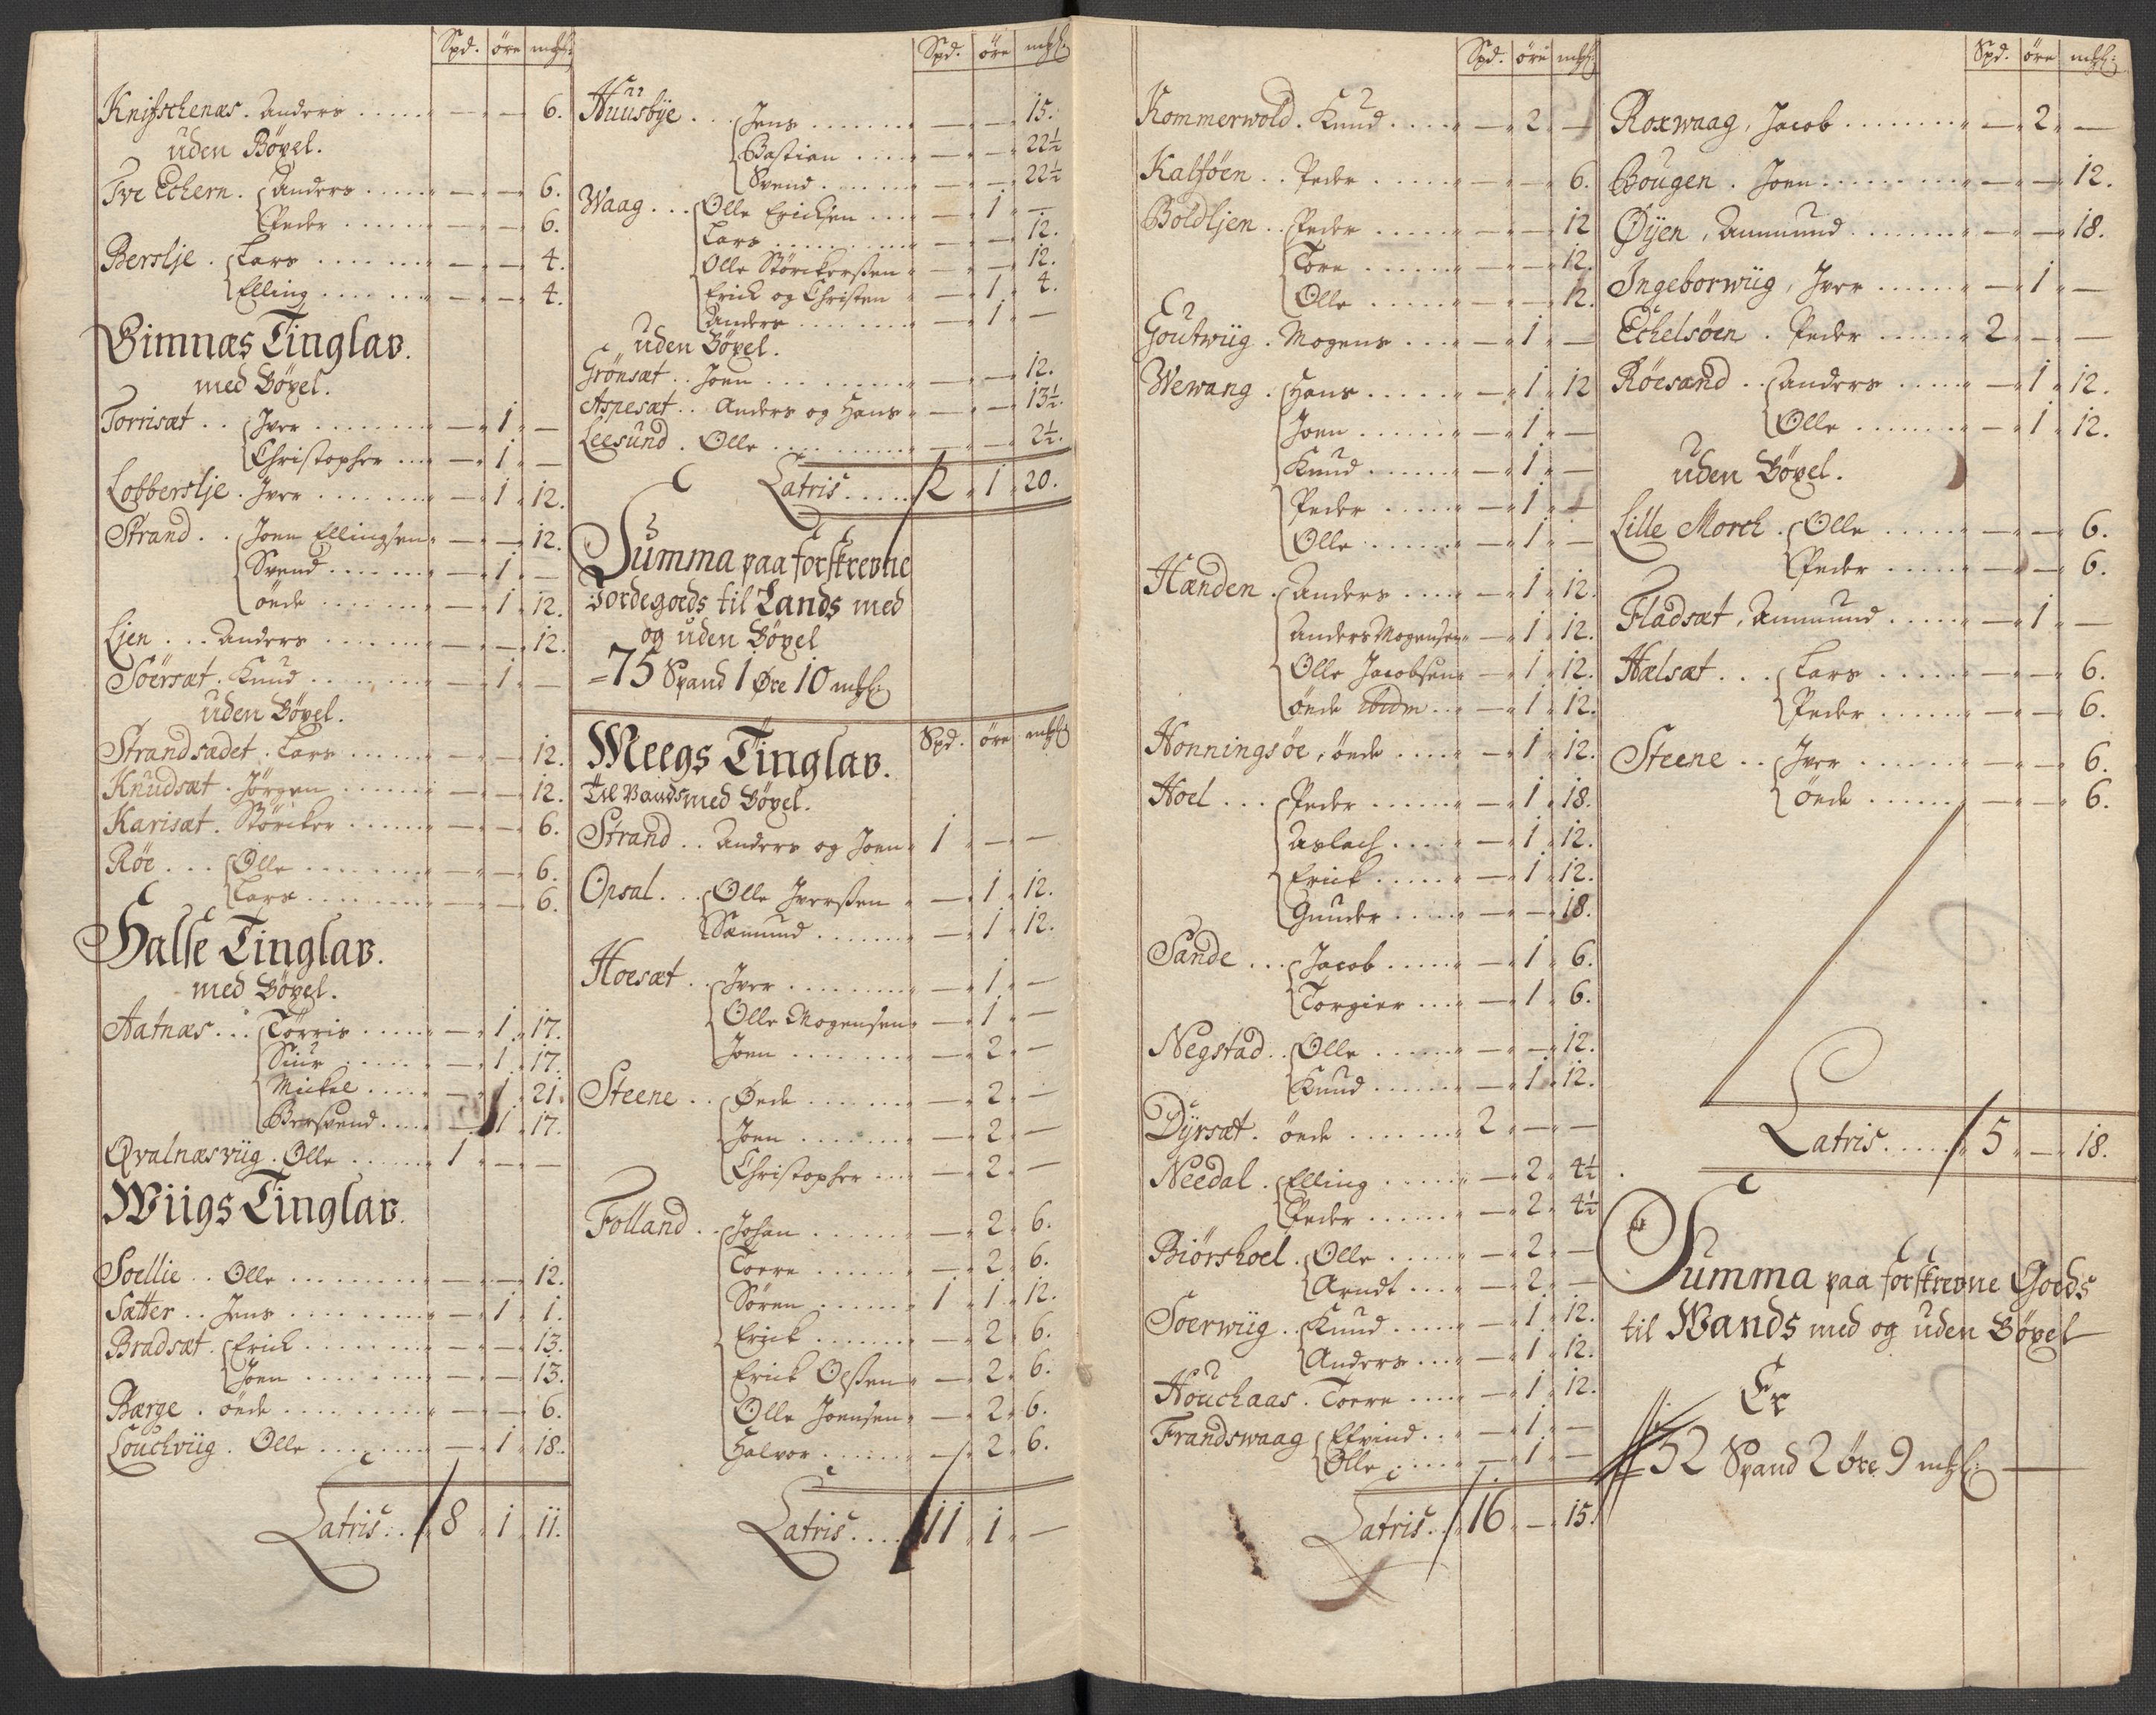 Spd. öre mȝl:
Knifschenæs. Anders . . . . . — " — " 6.
uden Böxel.
Tve Echern. Anders . . . . . — " — " 6.
Peder . . . . . . — " — " 6.
Berslje . Lars . . . . . . . — " — " 4.
Elling . . . . . . . — " — " 4.
Gimnæs Tinglav.
med Böxel.
Torrisæt . . Iver . . . . . . . — " 1 " —
Christopher . . . — " 1 " —
Lobberslje . Iver . . . . . . . — " 1 " 12.
Strand . . Joen Ellingsen — " — " 12.
Svend . . . . . . . — " 1 " —
öede . . . . . . . — " 1 " 12.
Ljen . . . Anders . . . . . . . — " — " 12.
Söersæt . Knud . . . . . . . — " 1 " —
uden Böxel.
Strandsædet . Lars . . . . . . — " — " 12.
Knudsæt . Jörgen . . . . . . — " — " 12.
Karisæt . Störcker . . . . . . — " — " 6.
Röe . . . Olle . . . . . . . . — " — " 6.
Lars . . . . . . . . — " — " 6.
Halse Tinglav.
med Böxel.
Aatnæs . . . Törris . . . . . — " 1 " 17.
Siur . . . . . — " 1 " 17.
Mickel . . . . . — " 1 " 21.
Bersvend . . . . — " 1 " 17.
Qvalnæsviig . Olle . . . . . . 1 " — " —
Wiigs Tinglav.
Soellie . . Olle . . . . . . . . . — " — " 12.
Sætter . . Jens . . . . . . . . . — " 1 " 1.
Brædsæt . Erich . . . . . . . . — " — " 13.
Joen . . . . . . . . — " — " 13.
Bærge . öede . . . . . . . . . — " — " 6.
Louchviig . Olle . . . . . . . . — " 1 " 18.
Latris . . . 8 " 1 " 11.
Spd. öre mȝl:
Huusbye . . . Jens . . . . . . . — " — " 15.
Bastian . . . . — " — " 22½
Svend . . . . . . — " — " 22½
Waag . . . Olle Erichsen . . . — " 1 " —
Lars . . . . . . . . . — " — " 12.
Olle Störckersen " — " — " 12.
Erich og Christen " — " 1 " 4.
Anders . . . . . . . . — " 1 " —
uden Böxel.
Grönsæt . . Joen . . . . . . . . . — " — " 12.
Aspesæt . . Anders og Hans " — " — " 13½.
Leesund . Olle . . . . . . . . . — " — " 2½.
Latris . . . . . 2 " 1 " 20.
Summa paa forskrevne
Jordegoeds til Lands med
og uden Böxel
= 75 Spand 1 Öre 10 mȝl:
Meegs Tinglav. Spd. öre mȝl
Til Vands med Böxel.
Strand . . Anders og Joen " 1 " — " —
Opsal . . . Olle Iversen " — " 1 " 12.
Sæmund . . . . . . . — " 1 " 12.
Hoesæt . . Iver . . . . . . . . . — " 1 " —
Olle Mogensen " — " 1 " —
Joen . . . . . . . . . — " 2 " —
Steene . . Öede . . . . . . . — " 2 " —
Joen . . . . . . . — " 2 " —
Christopher . . . — " 2 " —
Folland . . Johan . . . . . . . — " 2 " 6.
Toere . . . . . . . — " 2 " 6.
Sören . . . . . . 1 " 1 " 12.
Erick . . . . . . . — " 2 " 6.
Erick Olsen " — " 2 " 6.
Olle Joensen " — " 2 " 6.
Halvor . . . . . . — " 2 " 6.
Latris . . . . 11 " 1 " —
Spd. öre mȝl:
Kommerwold . Knud . . . . " — " 2 " —
Kalsöen . . Peder . . . . . " — " — " 6.
Boldljen . . Peder . . . . . " — " — " 12
Tore . . . . . . " — " — " 12.
Olle . . . . . . " — " — " 12.
Goutwiig . Mogens . . . " — " 1 " —
Wewang . Hans . . . . . " — " 1 " 12
Joen . . . . . . " — " 1 " —
Knud . . . . . . " — " 1 " —
Peder . . . . . . " — " 1 " —
Olle . . . . . . " — " 1 " —
Hænden . Anders . . . . " — " 1 " 12.
Anders Mogensen " — " 1 " 12.
Olle Jacobsen " — " 1 " 12.
öede ibidm . . " — " 1 " 12.
Honningsöe, öede . . . . " — " 1 " 12.
Hoel . . . Peder . . . . . . " — " 1 " 18.
Aslach . . . . . " — " 1 " 12.
Erick . . . . . " — " 1 " 12.
Gunder . . . . . " — " — " 18.
Sande . . . Jacob . . . . . " — " 1 " 6.
Torgier . . . " — " 1 " 6.
Negstad . . Olle . . . . . . " — " — " 12.
Knud . . . . . . " — " 1 " 12.
Dyrsæt . öede . . . . . . . " 2 " — " —
Needal . Elling . . . . . " — " 2 " 4½
Peder . . . . . . " — " 2 " 4½
Biörshoel . Olle . . . . . " — " 2 " —
Arndt . . . " — " 2 " —
Soerwiig . . Knud . . . . . " — " 1 " 12.
Anders . . . " — " 1 " 12.
Houchaas . Toere . . . . " — " 1 " 12.
Frandswaag Efvind . . " — " 1 " —
Olle . . . . . " — " 1 " —
Latris . . 16 " — " 15.
Spd. öre mȝl:
Roxwaag, Jacob . . . . . . . . " — " 2 " —
Bougen . Joen . . . . . . . . . " — " — " 12.
Øyen, Anmund . . . . . . . . " — " — " 18.
Ingeborwiig, Iver . . . . . . " — " 1 " —
Echelsöen . Peder . . . . . . " 2 " — " —
Röesand . . Anders . . . . . " — " 1 " 12.
Olle . . . . . . . " — " 1 " 12.
uden Böxel.
Lille Morch . Olle . . . . . . " — " — " 6.
Peder . . . . . . " — " — " 6.
Fladsæt, Anmund . . . . . " — " 1 " —
Hælsæt . . . Lars . . . . . . " — " — " 6.
Peder . . . . . . " — " — " 6.
Steene . . Iver . . . . . . . — " — " 6.
öede . . . . . . — " — " 6.
Latris . . . . . 5 " — " 18.
Summa paa forskrevne Goeds
til Wands med og uden Böxel
Er
52 Spand 2 öre 9 mȝl: —